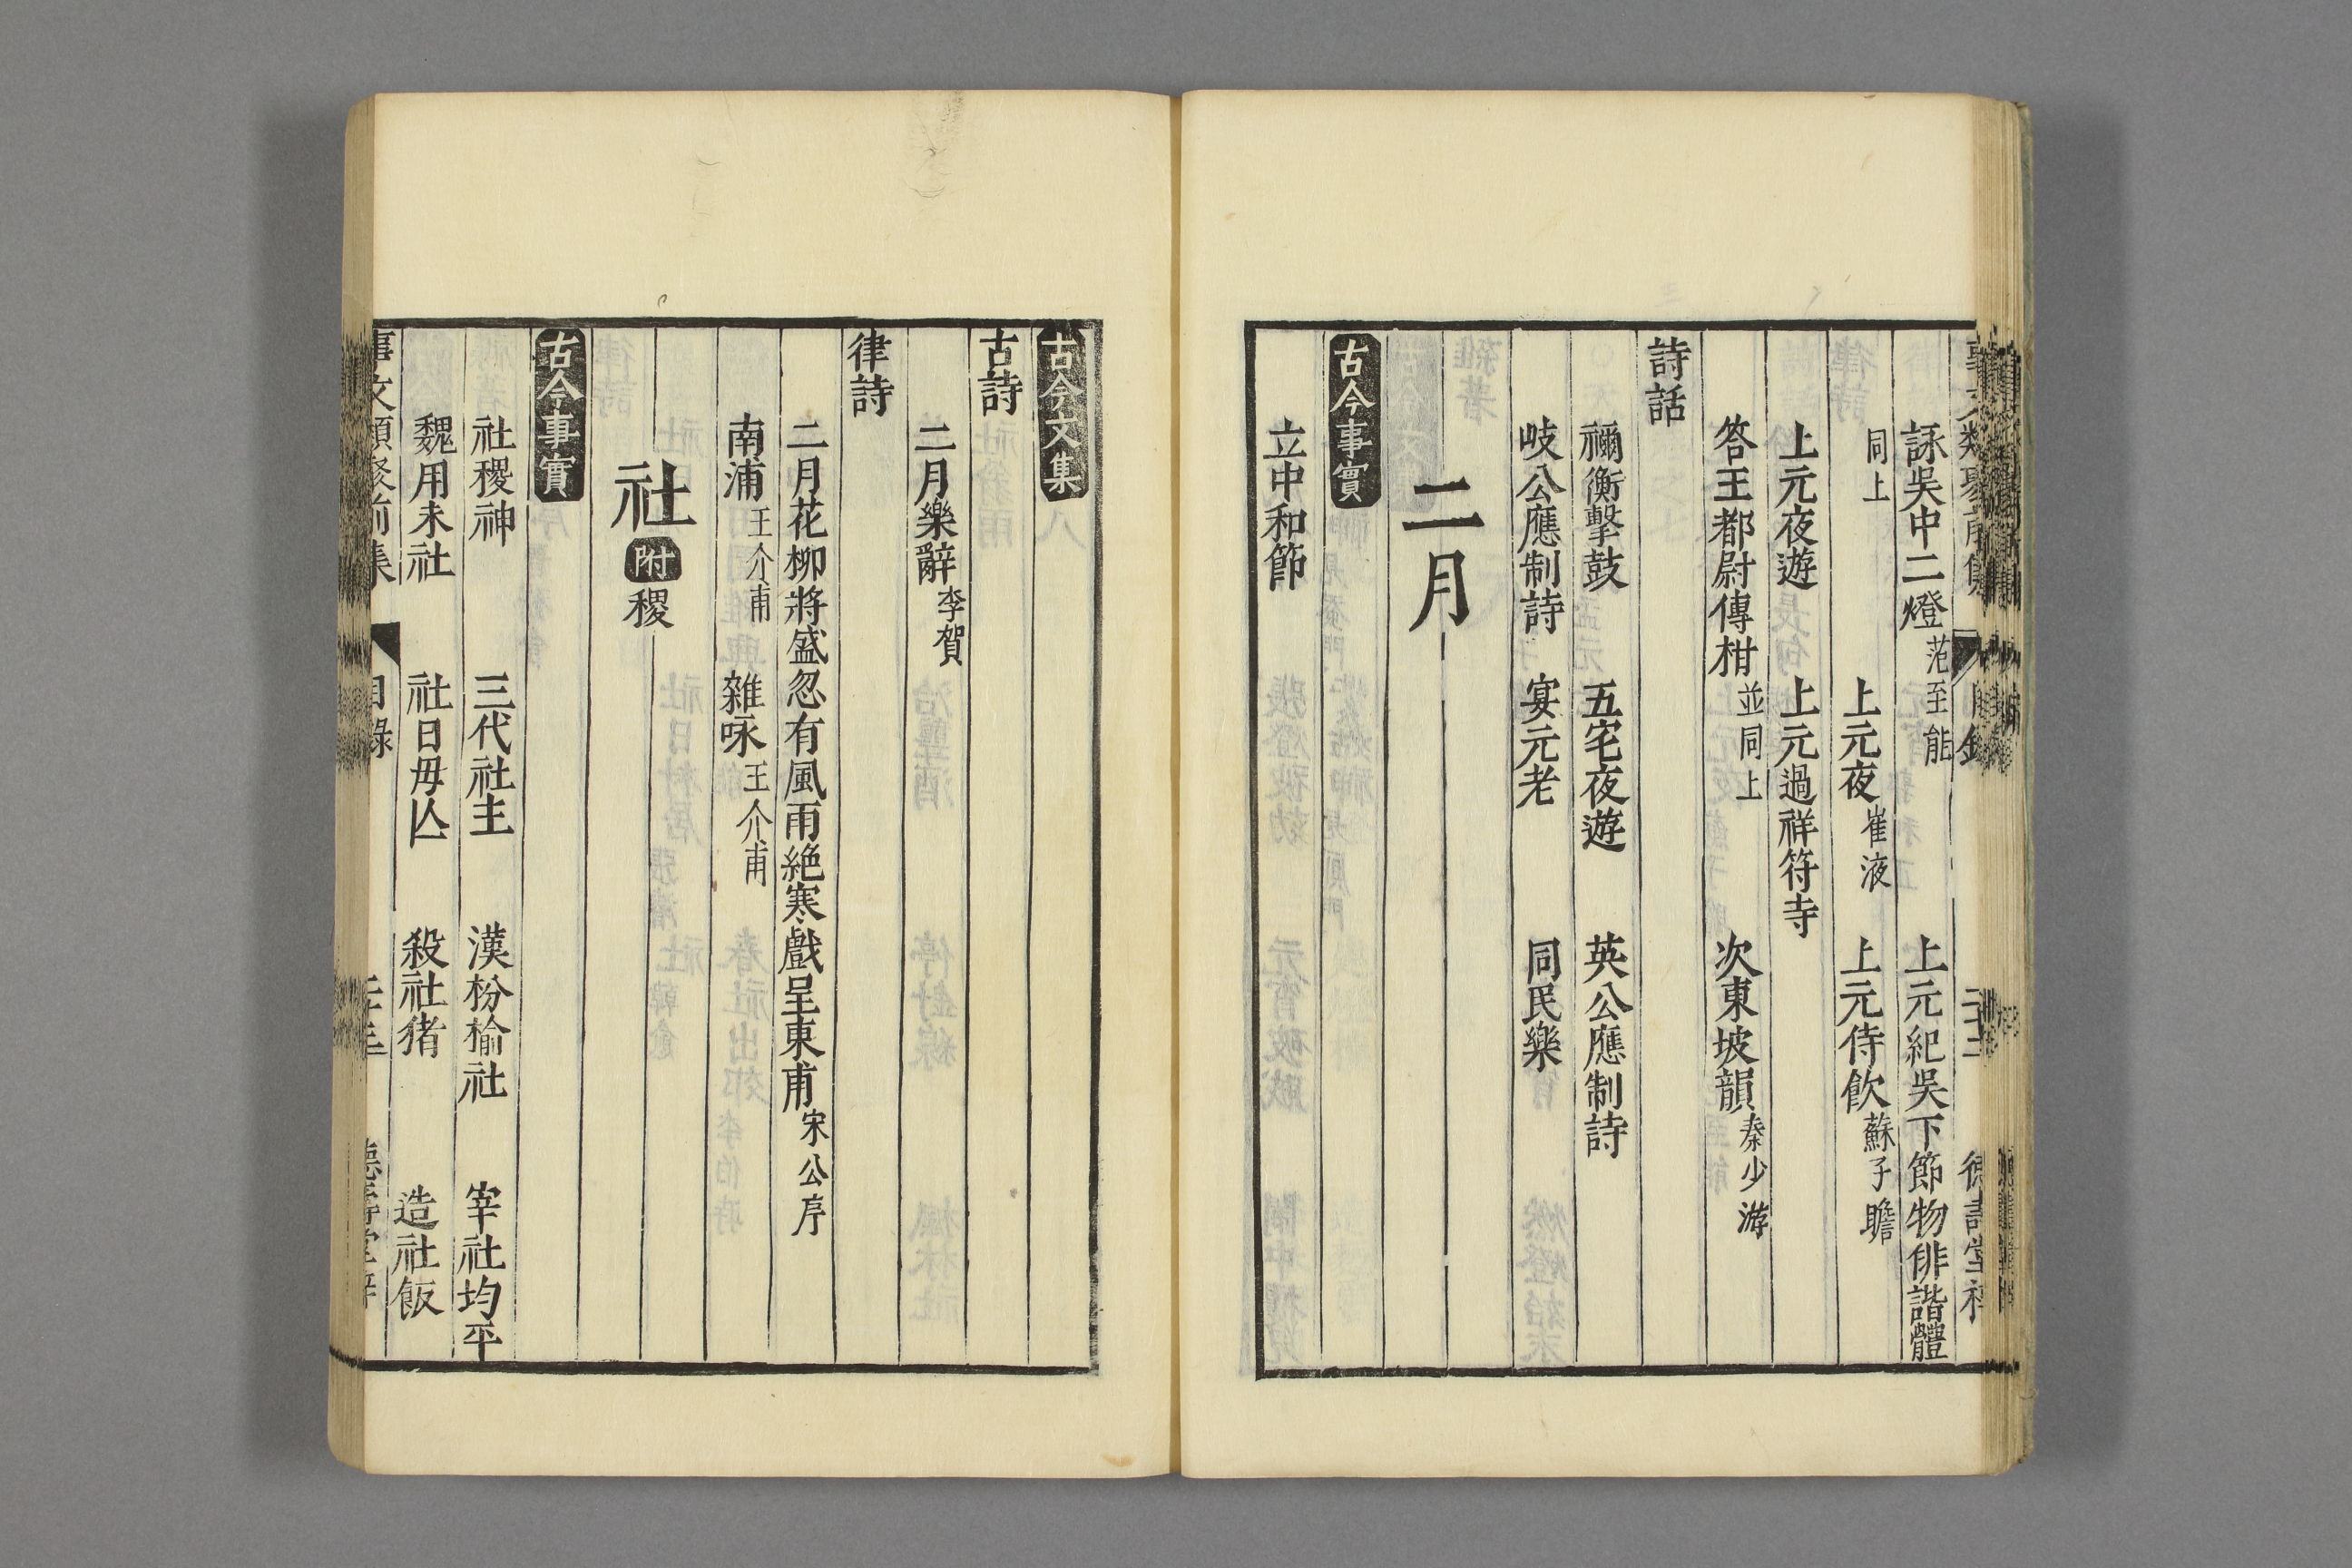 詠吳中二燈 范至能 上元紀吳下節物俳諧體
同上 上元夜 崔液 上元侍飲 蘇子瞻
上元夜遊 上元過祥符寺
答王都尉傳柑 並同上 次東坡韻 秦少游
詩話
禰衡擊鼓 五宅夜遊 英公應制詩
岐公應制詩 宴元老 同民樂
二月
古今事實
立中和節
古今文集
古詩
二月樂辭 李賀
律詩
二月花柳將盛忽有風雨絶寒戲呈東甫 宋公序
南浦 王介甫 雜咏 王介甫
社 附 稷
古今事實
社稷神 三代社主 漢枌榆社 宰社均平
魏用未社 社日毋亾 殺社猪 造社飯